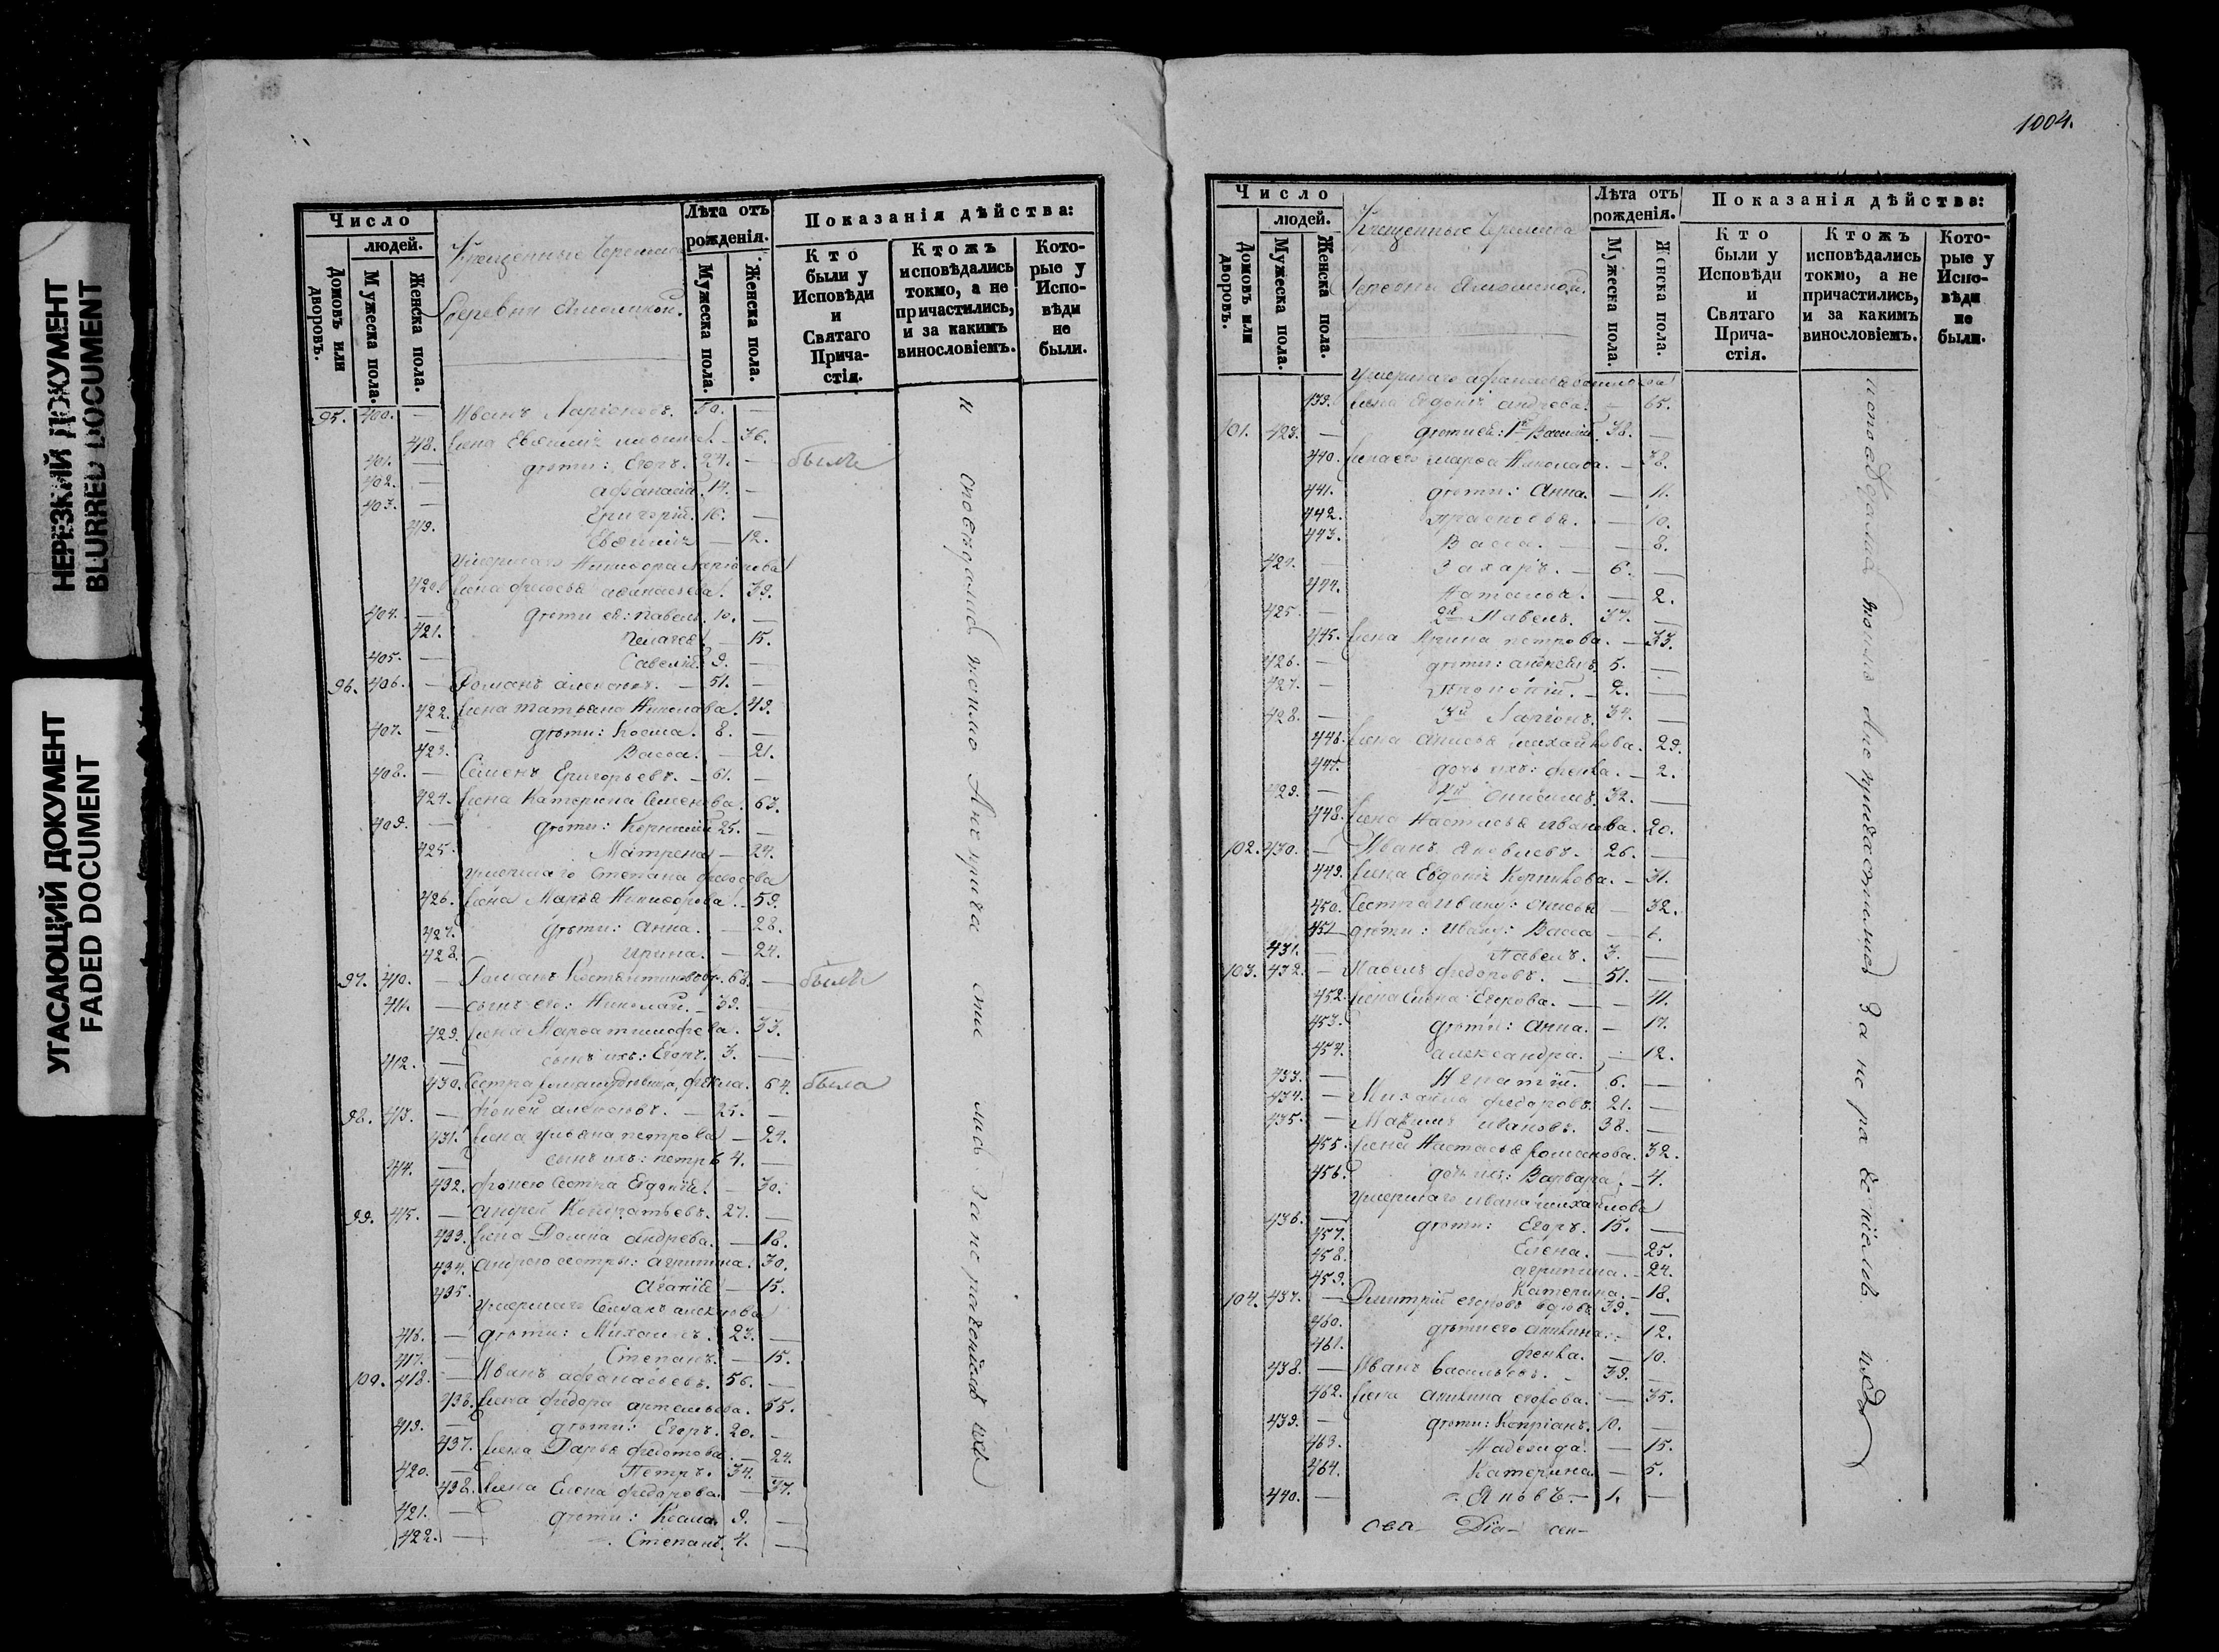 НЕРЕЗКИЙ ДОКУМЕНТ
BLURRED DOCUMENT
УГАСАЮЩИЙ ДОКУМЕНТ
FADED DOCUMENT
Число
людей.
Домовъ или дворовъ.
Мужеска пола.
Женска пола.
Крещенные Черемиса
деревни
Лѣта отъ рожденія.
Мужеска пола.
Женска пола.
Показанія дѣйства:
Кто были у Исповѣди и Святаго Причастія.
Ктожъ исповѣдались токмо, а не причастились, и за какимъ винословіемъ.
Которые у Исповѣди не были.
95. 400. — Иванъ Ларіоновъ. 50. —
418. Жена Евѳимія 36.
401. — дѣти: Егоръ. 24. — были
402. — Афанасій. 14. —
403. — Григорій. 16. —
419. Евѳимія — 12.
Умершаго Никифора Ларіонова
420. Жена Федосья Афанасьева. 39.
404. — дѣти ея: Павелъ. 10. —
421. Пелагея — 15.
405. — Савелій. 9. —
96. 406. — Романъ Алексѣевъ. — 51. —
422. Жена Татьяна Николаева. 49.
407. — дѣти: Косма. 8. —
423. Васса. — 21.
408. — Семенъ Григорьевъ. — 61. —
424. Жена Катерина Семенова. 63.
409. — дѣти: Корнилій 25. —
425. Матрена — 24.
Умершаго Степана Федосѣева
426. Жена Марья Никифорова. 59.
427. дѣти: Анна. — 28.
428. Ирина. — 24.
97. 410. — Романъ Костентиновъ. 68. — были
411. — сынъ его: Николай. — 39.
429. Жена Марфа Тимофеева. 33.
412. — сынъ ихъ: Егоръ. 3. —
430. Сестра Фекла. 64. была
98. 413. — Фокей Алексѣевъ. — 25. —
431. Жена Ульяна Петрова — 24.
414. — сынъ ихъ: Петръ 4. —
432. Фокею сестра Евдокія. — 30.
99. 415. — Андрей Кондратьевъ. 27. —
433. Жена Домна Андреева. — 18.
434. Андрею сестры: Агрипина. 30.
435. Агапія — 15.
Умершаго
416. — дѣти: Михаилъ. 23. —
417. — Степанъ. — 15.
100. 418. — Иванъ Афанасьевъ. 56. —
436. Жена Федора 55.
419. — дѣти: Егоръ. 20. —
437. Жена Дарья Федотова. — 24.
420. — Петръ. 34. —
438. Жена Елена Федорова. — 37.
421. — дѣти: Косма. 9. —
422. — Степанъ. 4. —
исповѣдались токмо а не причастились за неразвѣніемъ
1004.
Число
людей.
Домовъ или дворовъ.
Мужеска пола.
Женска пола.
Крещенные Черемиса
деревни
Лѣта отъ рожденія.
Мужеска пола.
Женска пола.
Показанія дѣйства:
Кто были у Исповѣди и Святаго Причастія.
Ктожъ исповѣдались токмо, а не причастились, и за какимъ винословіемъ.
Которые у Исповѣди не были.
Умершаго Афанасья
439. Жена Евдокія Андреева. — 65.
101. 423. — дѣти ея: 1й Василій. 38. —
440. Жена его Марфа Николаева. — 38.
441. дѣти: Анна. — 11.
442. Прасковья. — 10.
443. Васса. — 8.
424. — Захаръ. — 6. —
444. Наталья. — 2.
425. — 2й Павелъ. 37. —
445. Жена Ирина Петрова. — 33.
426. — дѣти: Алексѣй. 5. —
427. — Прокопій. — 2. —
428. — 3й Ларіонъ. 34. —
446. Жена Анисья Михайлова. 29.
447. дочь ихъ: Фекла. — 2.
429. — 4й Онисимъ. 32. —
448. Жена Настасья Иванова. 20.
102. 430. — Иванъ Яковлевъ. 26. —
449. Жена Евдокія Корнилова. — 31.
450. Сестра Ивану: Анисья — 32.
451 дѣти: Ивану: Васса — 6.
431. — Павелъ. 3. —
103. 432. — Павелъ Федоровъ. — 51. —
452. Жена Елена Егорова. — 41.
453. дѣти: Анна. — 17.
454. Александра. — 12.
433. — Игнатій. 6. —
434. — Михайла Федоровъ. 21. —
435. — Максимъ Ивановъ. 38. —
455. Жена Настасья Романова. 32.
456. дочь ихъ: Варвара. — 4.
Умершаго Ивана Михайлова
436. — дѣти: Егоръ. 15. —
457. Елена. — 25.
458. Агрипина. — 24.
459. Катерина. — 18.
104. 437. — Димитрій Егоровъ вдовъ. 39. —
460. дѣти его Акилина. — 12.
461. Фекла. — 10.
438. — Иванъ Васильевъ. — 39. —
462. Жена Акилина Егорова. — 35.
439. — дѣти: Кипріанъ. 10. —
463. Надежда. — 15.
464. Катерина — 5.
440. — Яковъ. — 1. —
исповѣдались токмо а не причастились за